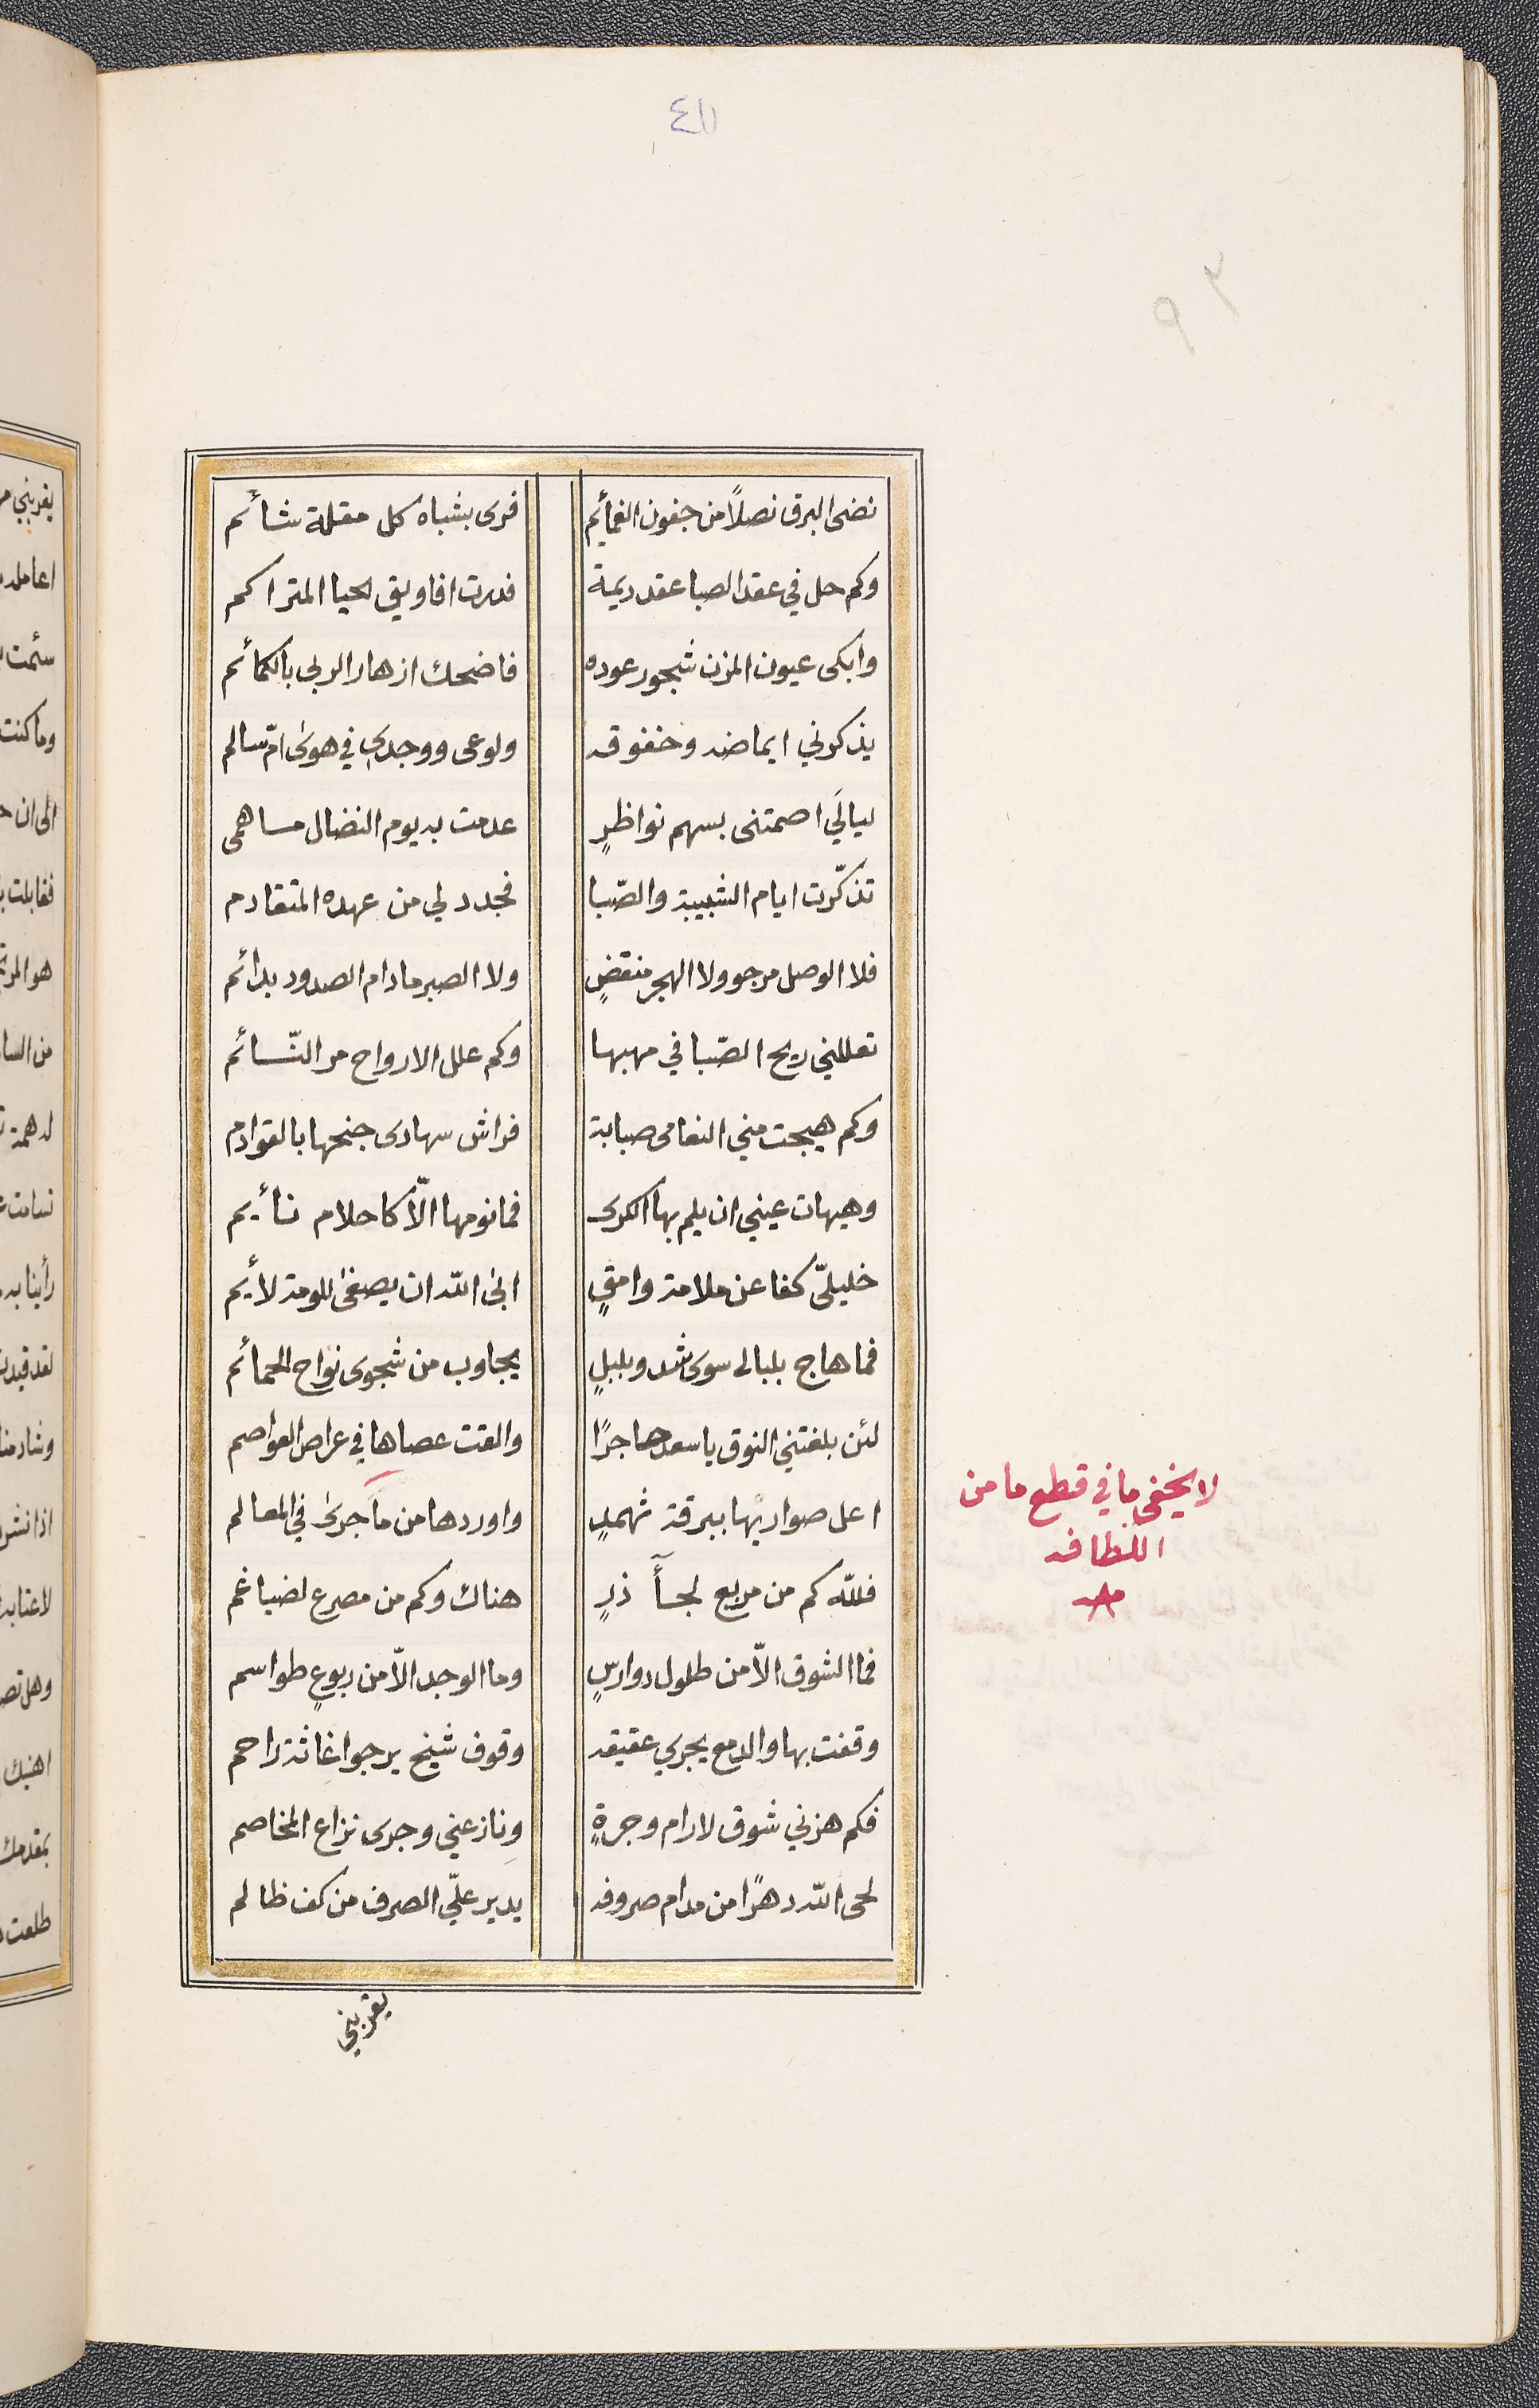 نضى البرق نصلاً من جفون الغمأيم فرى بشباه كل مقلة شأئم
وكم حل في عقد الصبا عقد ديمة فدرت افاويق الحيا المتراكم
وابكى عيون المزن شجو رعوده فاضحك ازهار الربى بالكمأئم
يذكرني ايماضه وخفوقه ولوعى ووجدي في هوى امّ سالم
ليالَي اصمتنى بسهم نواظرٍ عدمت به يوم النضال مساهمى
تذكّرت ايام الشبيبة والصّبا فجدد لي من عهده المتقادم
فلا الوصل مرجو ولا الهجر منقضٍ ولا الصبر مادام الصدود بدائم
تعللني ريح الصّبا في مهبها وكم علل الارواح مر النّسائم
وكم هيجت مني النعامى صبابة فراش سهادى جنحها بالقوادم
وهيهات عيني ان يلم بها الكرى فما نومها الّا كاحلام نأيم
خليليّ كفا عن ملامة وامقٍ ابى الله ان يصغى للومة لأيم
فما هاج بلبالى سوى شدو بلبلٍ يجاوب من شجوى نواح الحمأئم
لئن بلغتني النوق يا سعد حاجرًا والقت عصاها في عراص العواصم
اعل صواديها ببرقة ثهمدٍ واوردها من ما جرى في المعالم
فلله كم من مربع لجأٓ ذرٍ هناك وكم من مصرع لضياغم
فما الشوق الّا من طلول دوارسٍ وما الوجد الّا من ربوعٍ طواسم
وقفت بها والدمع يجري عقيقه وقوف شيخ يرجو اغاثة راحم
فكم هزني شوق لارام وجرةٍ ونازعني وجدى نزاع المخاصم
لحى الله دهرًا من مدام صروفه يدير عليّ الصرف من كف ظالم
لا يخفى ما في قطع ما من
اللطافه
يقربني